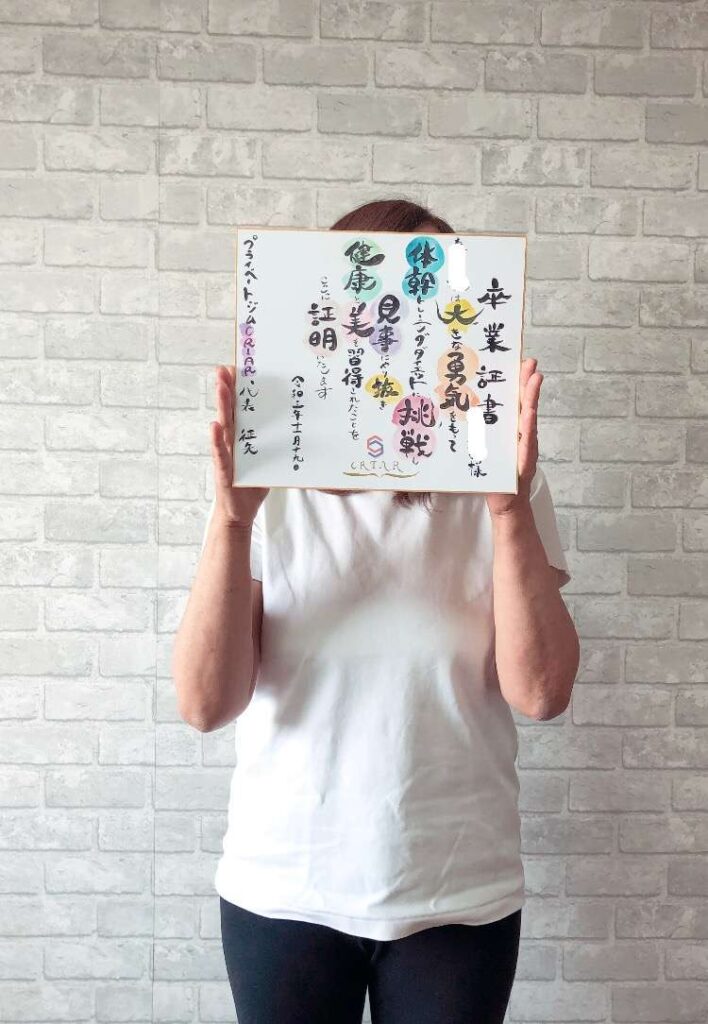 卒業証書
様
は大きな勇気をもって
体幹トレーニングダイエットに挑戦し
見事にやり抜き
健康と美を習得されたことを
ここに証明いたします
プライベートジムCRIAR 代表
CRIAR